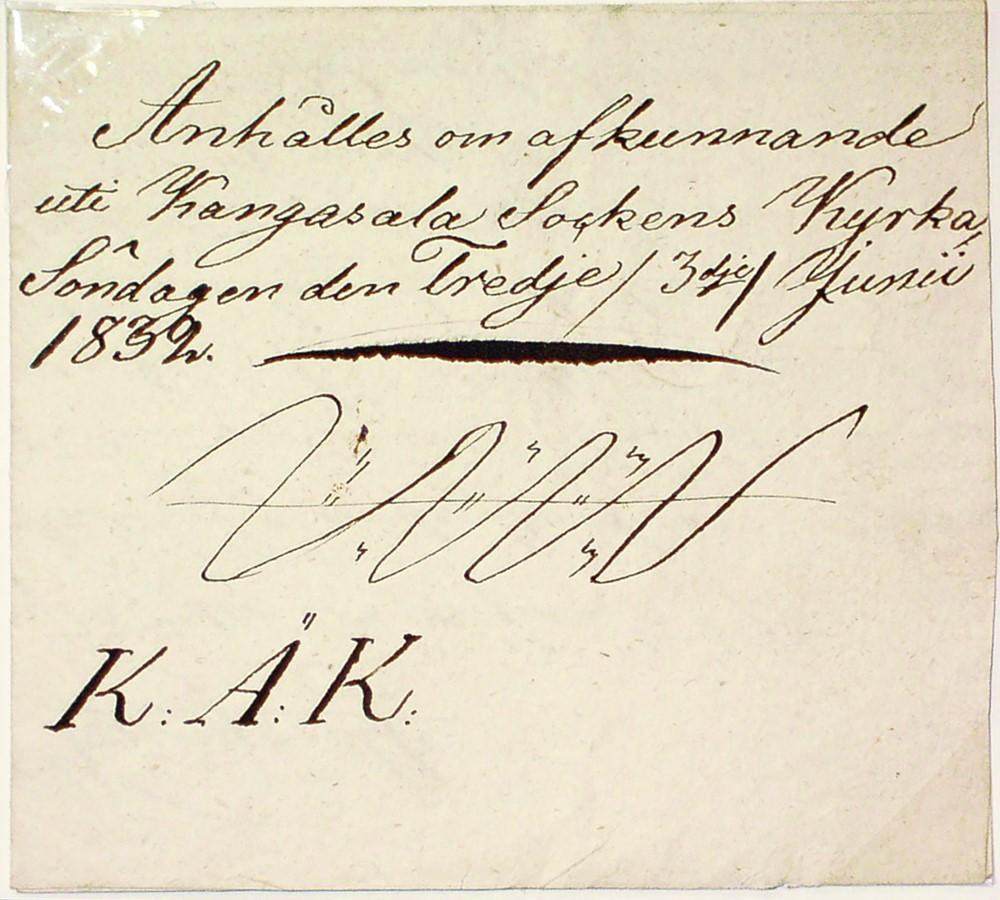 Anhålles om afkunnande
uti Kangasala Sockens Kyrka,
Söndagen den Tredje /3dje/ Junii
1832.
K: Ä: K: